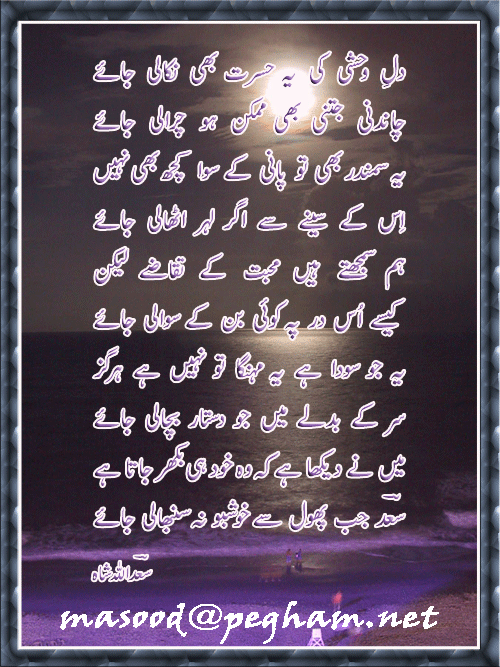 دلِ وحشی کی یہ حسرت بھی نکالی جائے
چاندنی جتنی بھی ممکن ہو چرالی جائے
یہ سمندر بھی تو پانی کے سوا کچھ بھی نہیں
اِس کے سینے سے اگر لہر اٹھالی جائے
ہم سمجھتے ہیں محبت کے تقاضے لیکن
کیسے اُس در پہ کوئی بن کے سوالی جائے
یہ جو سودا ہے یہ مہنگا تو نہیں ہے ہرگز
سر کے بدلے میں جو دستار بچالی جائے
میں نے دیکھا ہے کہ وہ خود ہی بکھر جاتا ہے
سعدؔ جب پھول سے خوشبو نہ سنبھالی جائے
سعدؔاللہ شاہ
masood@pegham.net